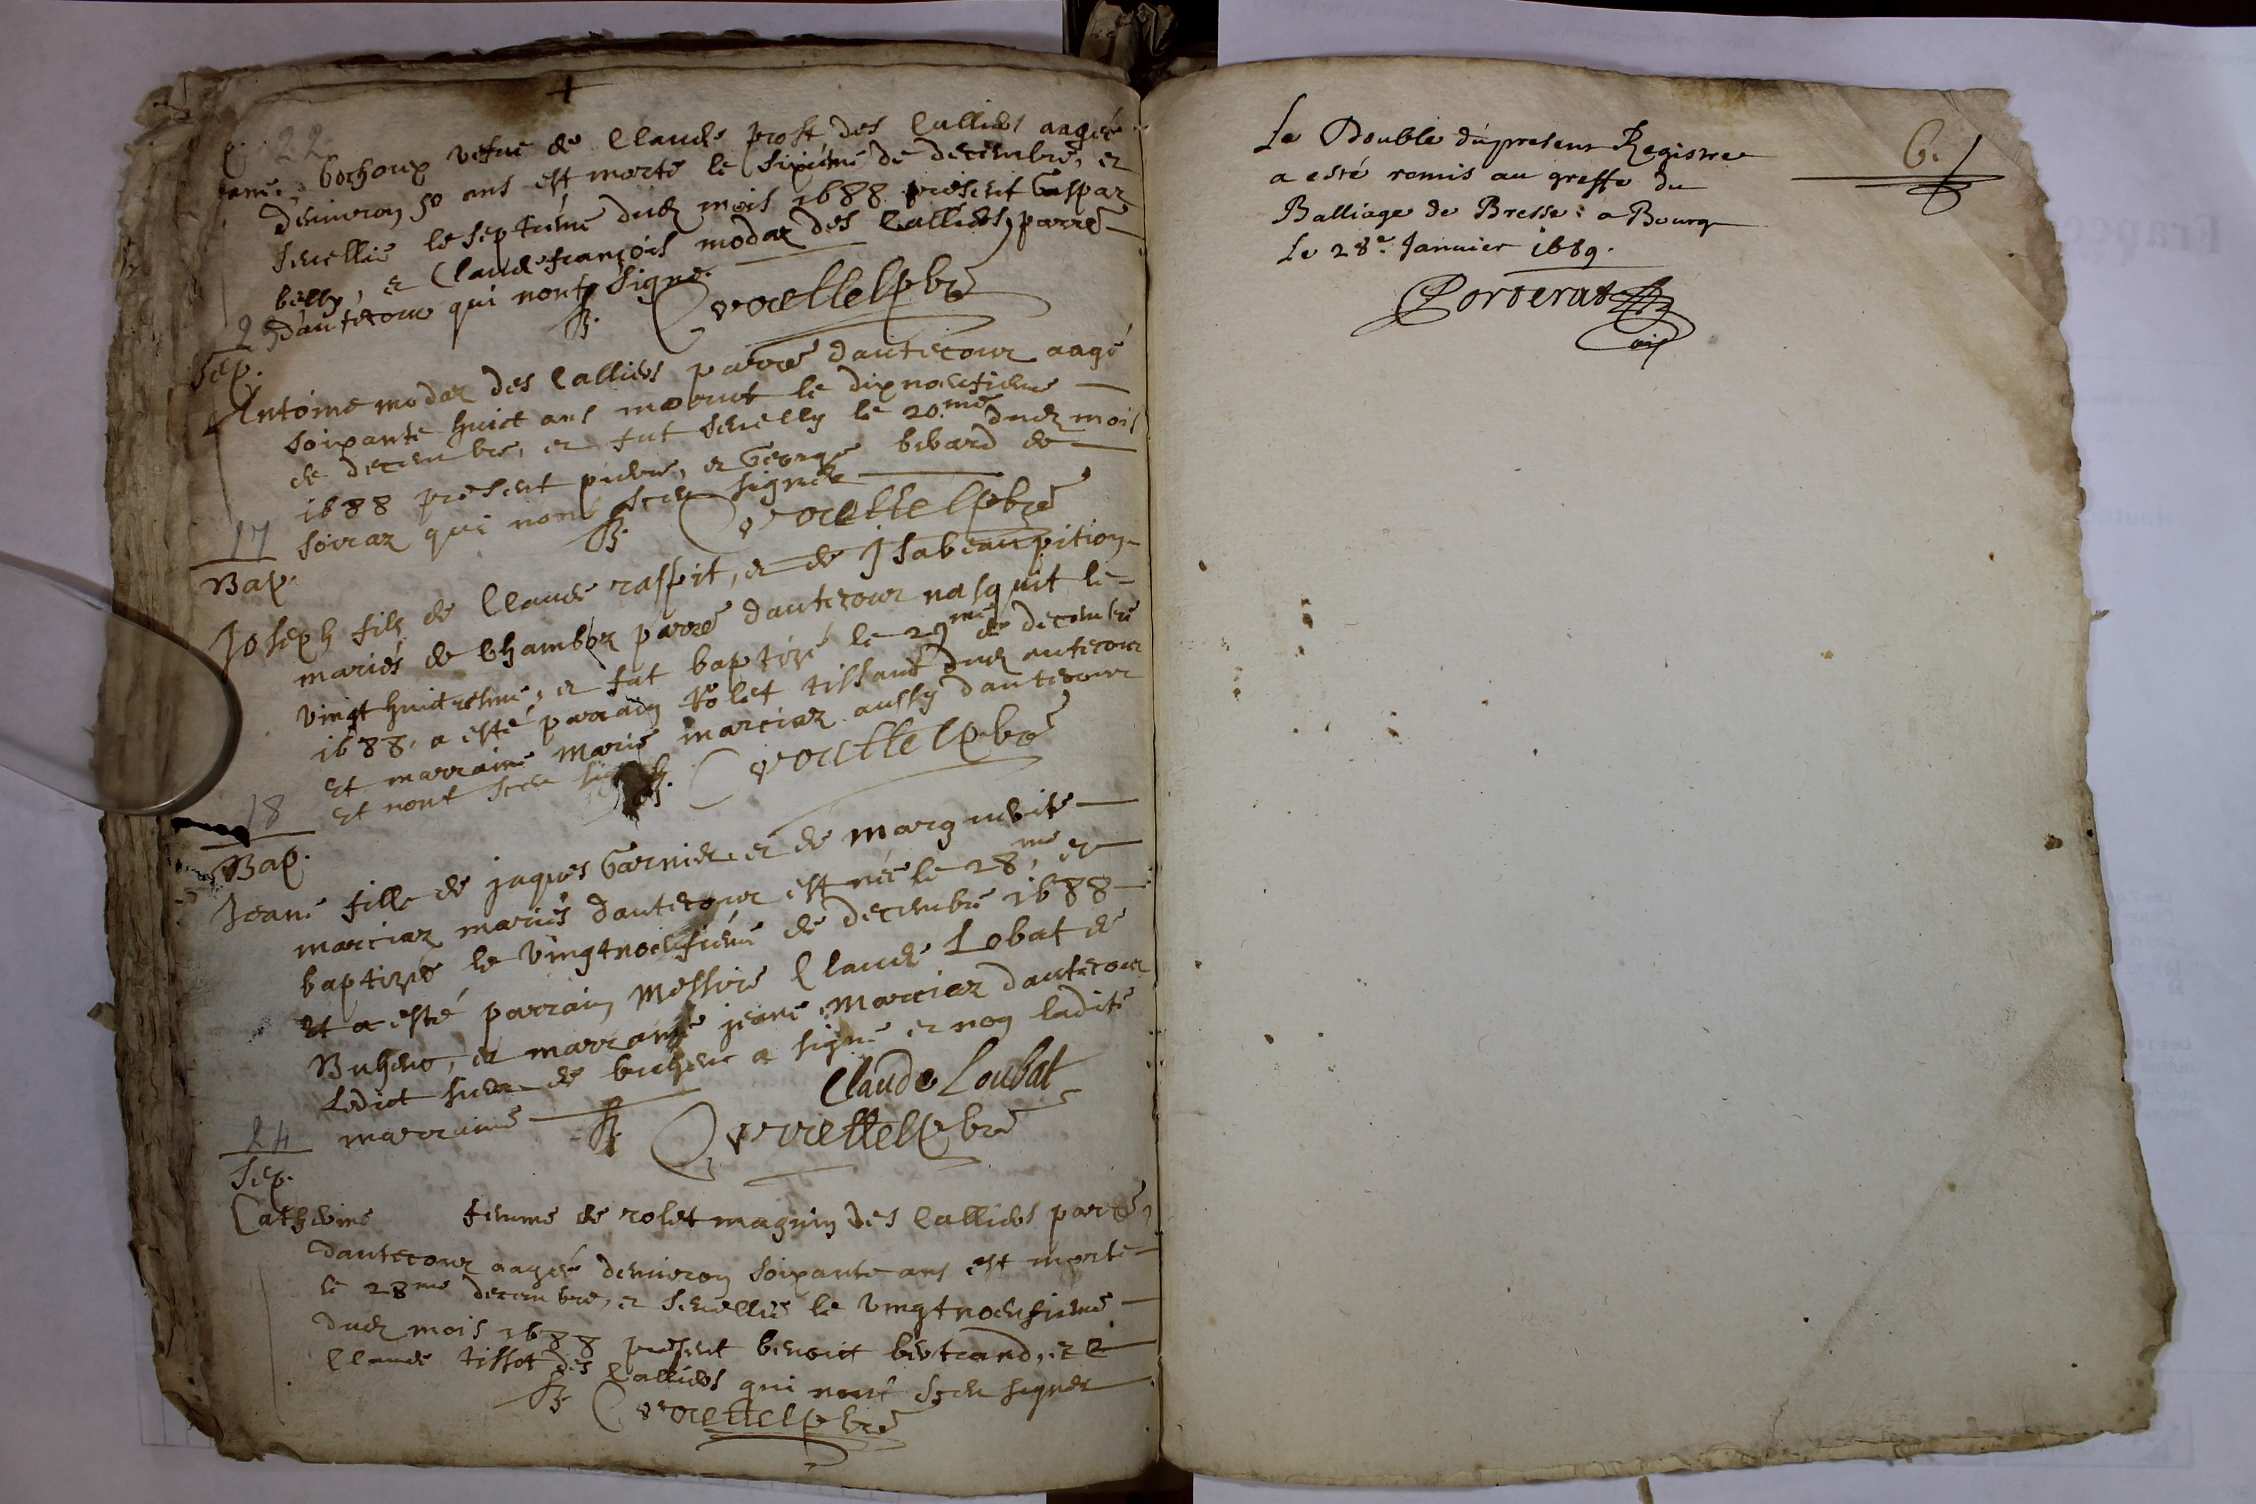 22
Bochoup vefue de Claude prost des Calliers aagée
denuiron 50 ans est morte le sixieme de decembre, et
seuellie le septieme dud mois 1688 present Gaspar
belly, et Claude françois modaz des Calliers, parre
dautecour qui nont signe.
pbre
Sep.
Antoine modaz des Calliers parre dautecour aagé
soixante huict ans mourut le dixneufieme
de decembre, et fut seuelly le 20.me dud mois
1688 present pierre, et George bebard de
soiraz qui nont sceu signer
pbre
17
Bap.
Joseph filz de Claude raffit, et de Jsabeau pition
mariés de Chamboz parre dautecour nasquit le
vingt huictiesme, et fut baptizé le 29me de decembre
1688. a esté parrain rolet tissand dud autecour
et marraine Marie marciaz aussy dautecour
et nont sceu
pbre
18
Bap.
Jeane fille de jaques Garnier et de marguerite
marciaz mariés dautecour est née le 28.me et
baptizée le vingtneufieme de decembre 1688
et a esté parrain Messire Claude Lobat de
Buhenc, et marraine jeane Marciaz dautecour
ledict sieur de buhenc a signé et non ladite
marraine
Claude Loubat
pbre
24
Sep.
Catherine femme de rolet magnin des Calliers parre
dautecour aagée denuiron soixante ans est morte
le 28me decembre, et seuellie le vingtneufieme
dud mois 1688 present benoict bertrand, et
Claude tissot des Calliers qui nont sceu signer
pbre
Le Double du present Registre
a esté remis au greffe du
Balliage de Bresse: a Bourg
Le 28e. Januier 1689.
Porterat
6.